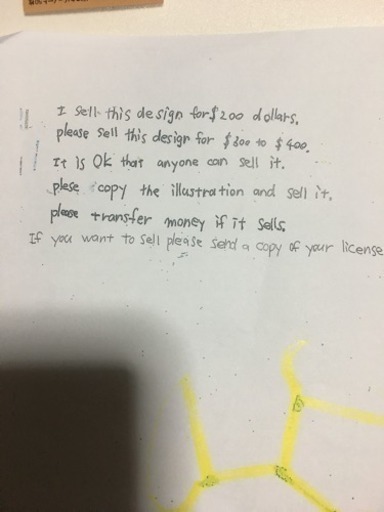 I sell this design for $200 dollars.
please sell this design for $300 to $400.
It is Ok that anyone can sell it.
plese copy the illustration and sell it.
please transfer money if it sells.
If you want to sell please send a copy of your license